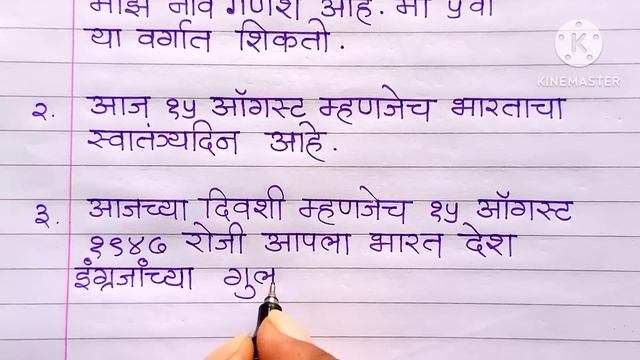 माझे नाव गणेश आहे. मी ५वी
या वर्गात शिकतो.
KINEMASTER
२. आज १५ ऑगस्ट म्हणजेच भारताचा
स्वातंत्र्यदिन आहे.
३. आजच्या दिवशी म्हणजेच १५ ऑगस्ट
१९४७ रोजी आपला भारत देश
इंग्रजांच्या गुल